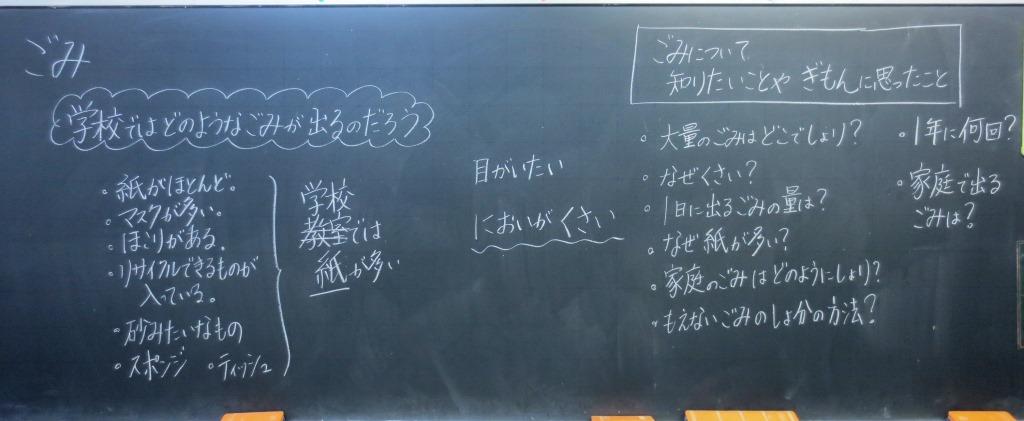 ごみ
学校ではどのようなごみが出るのだろう
・紙がほとんど。
・マスクが多い。
・ほこりがある。
・リサイクルできるものが
入っている。
・砂みたいなもの
・スポンジ ・ティッシュ
学校
教室では
紙が多い
目がいたい
においがくさい
ごみについて
知りたいことや ぎもんに思ったこと
・大量のごみはどこでしょり?
・なぜくさい?
・1日に出るごみの量は?
・なぜ紙が多い?
・家庭のごみはどのようにしょり?
・もえないごみのしょ分の方法?
・1年に何回?
・家庭で出る
ごみは?